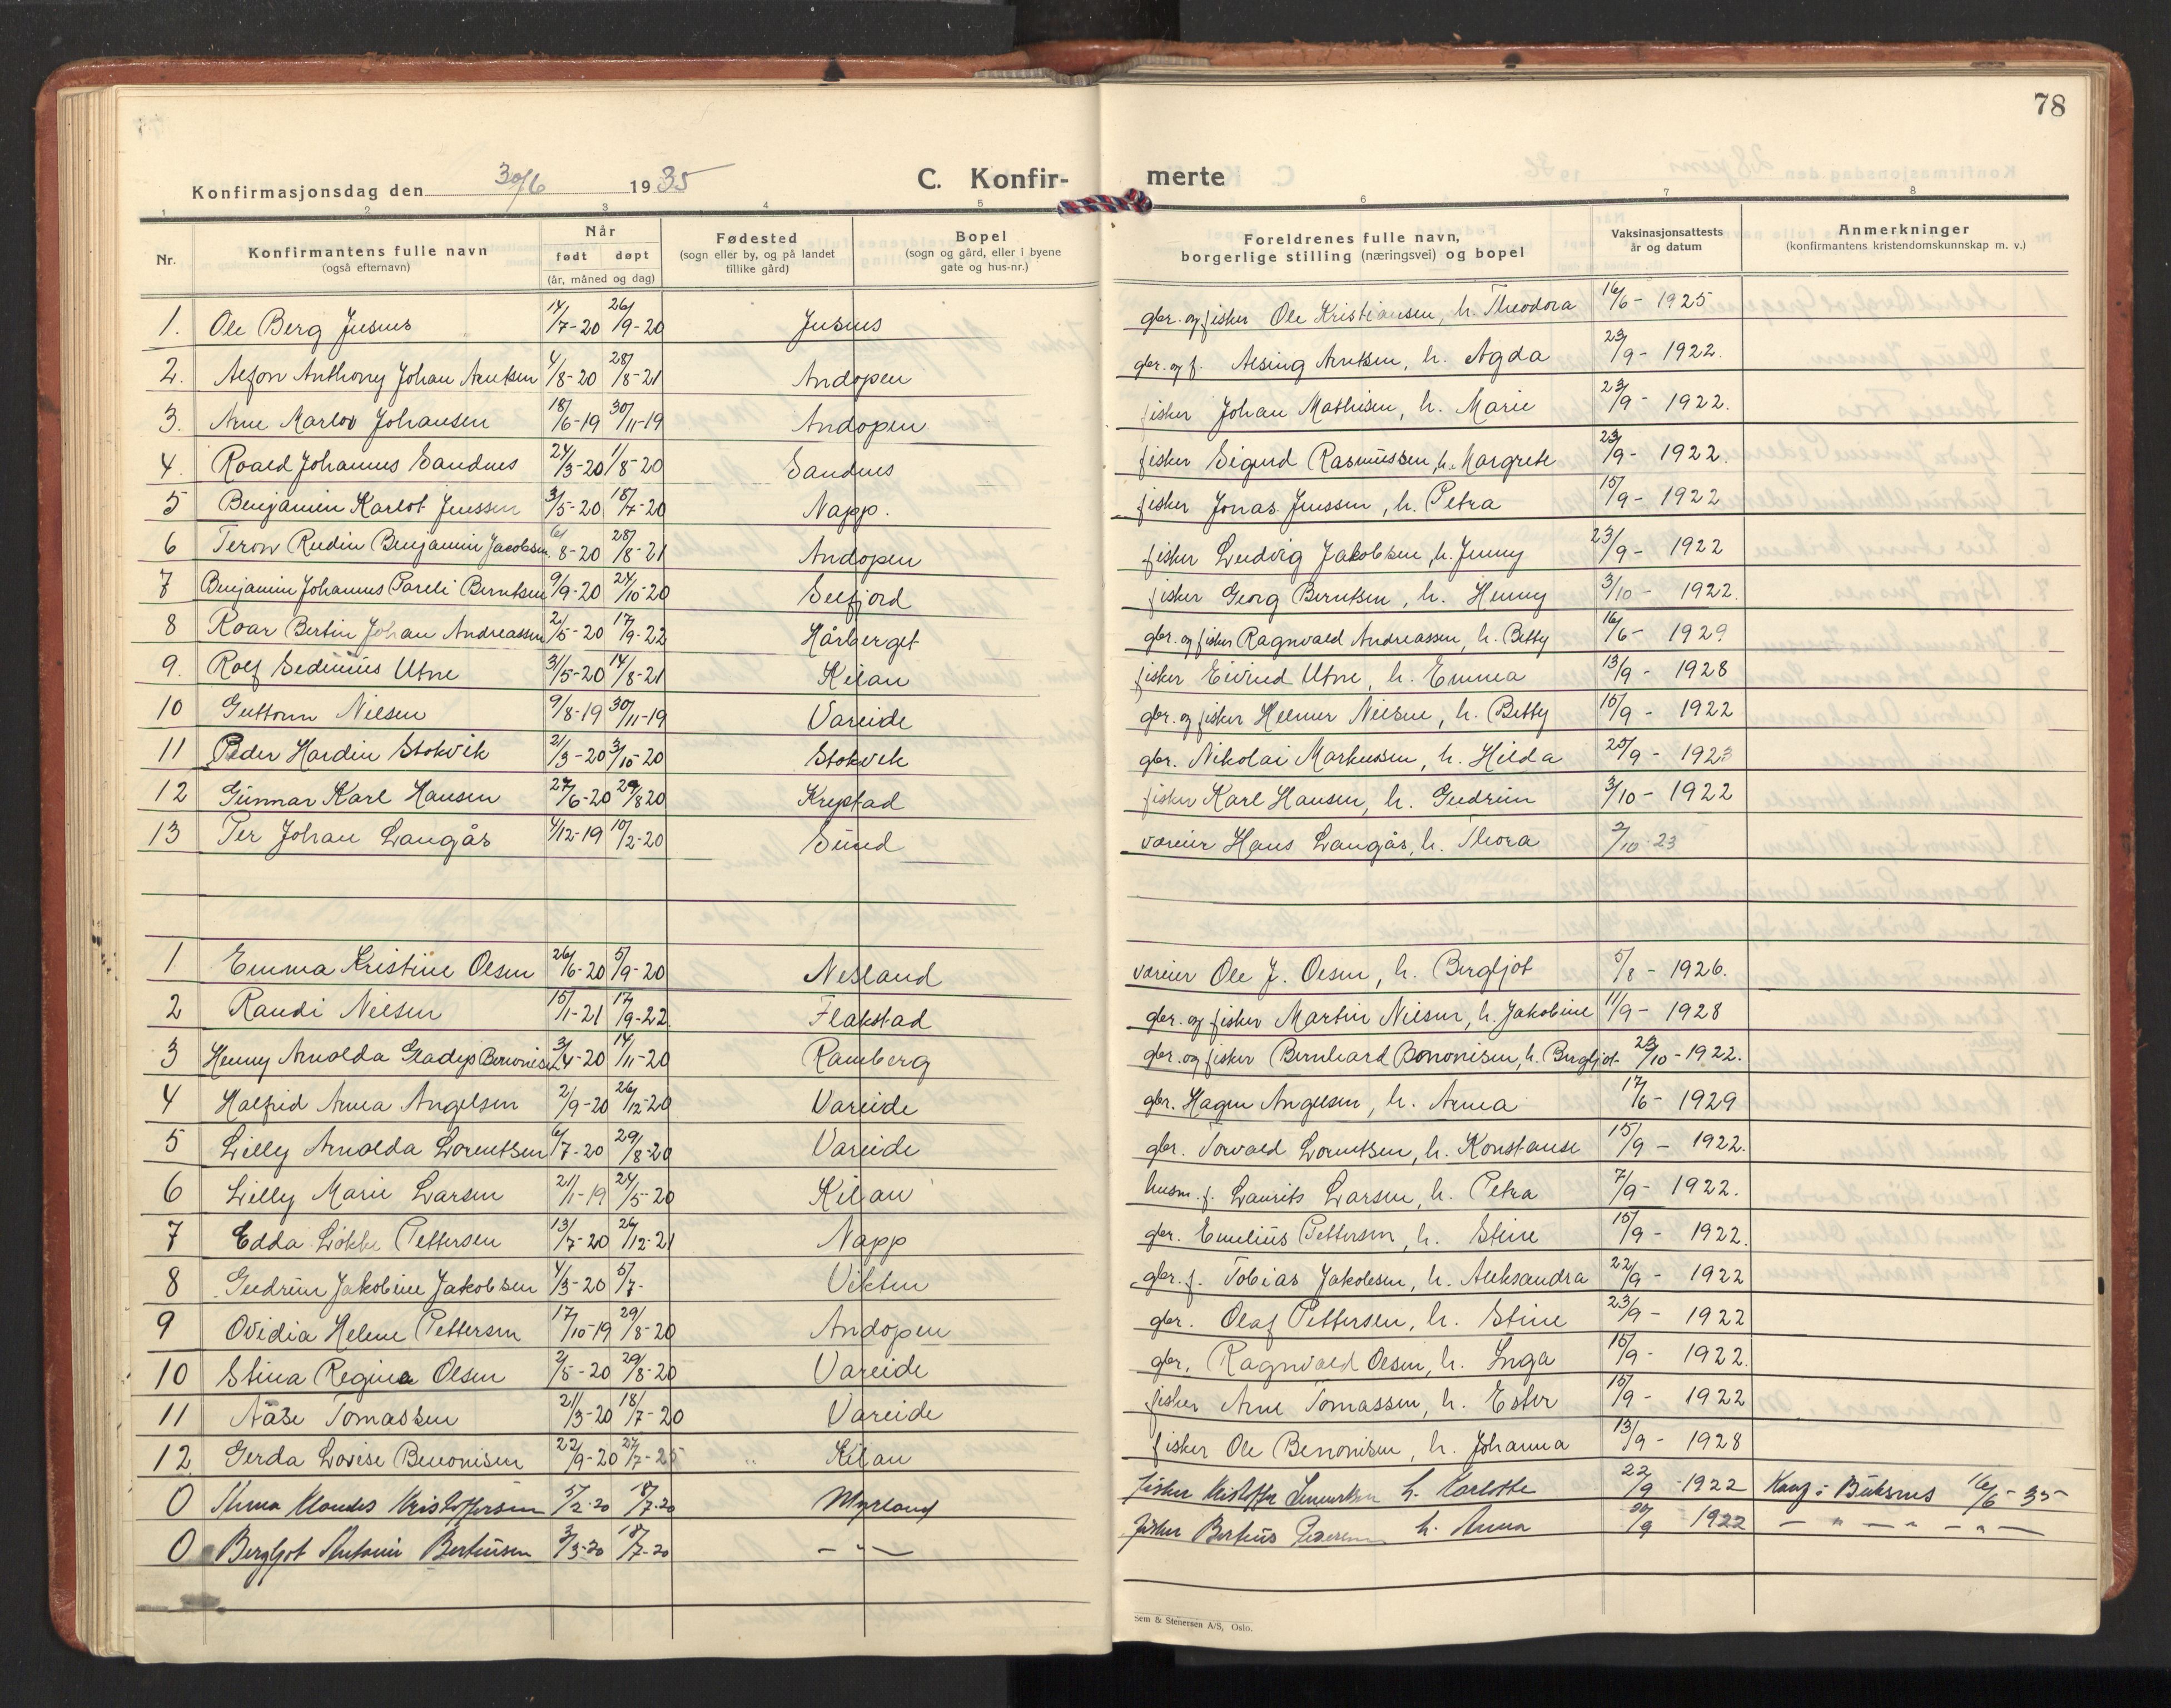 78
Konfirmasjonsdag den 30/6 1935 C. Konfir- merte
1 2 3 4 5 6 7 8
Nr. Konfirmantens fulle navn (også efternavn) Når født døpt (år, måned og dag) Fødested (sogn eller by, og på landet tillike gård) Bopel (sogn og gård, eller i byene gate og hus-nr.) Foreldrenes fulle navn, borgerlige stilling (næringsvei) og bopel Vaksinasjonsattests år og datum Anmerkninger (konfirmantens kristendomskunnskap m. v.)
1. Ole Berg Jusnes 14/7-20 26/9-20 Jusnes gbr. og fisker Ole Kristiansen, h. Theodora 16/6- 1925
2. Alfon Anthony Johan Arntsen 4/8-20 28/8-21 Andopen gbr. og f. Alsing Arntsen, h. Agda 23/9- 1922.
3. Arne Marlov Johansen 18/6-19 30/11-19 Andopen fisker Johan Mathisen, h. Marie 23/9- 1922.
4. Roald Johannes Sandnes 24/3-20 1/8-20 Sandnes fisker Sigurd Rasmussen, h. Margrete 23/9- 1922.
5 Benjamin Karlot Jenssen 3/5-20 18/7-20 Napp. fisker Jonas Jenssen, h. Petra 15/9- 1922
6 Rudin Benjamin Jacobsen 6/8-20 28/8-21 Andopen fisker Ludvig Jakobsen, h. Jenny 23/9- 1922
7 Benjamin Johannes Pareli Berntsen 9/9-20 24/10-20 Selfjord fisker Georg Berntsen, h. Henny 3/10- 1922.
8 Roar Bertin Johan Andreassen 2/5-20 17/9-22 Hårberget gbr. og fisker Ragnvald Andreassen, h. Betty 16/6- 1929
9. Rolf Sedinius Utne 31/5-20 14/8-21 Kilan fisker Eivind Utne, h. Emma 13/9- 1928
10 Guttorm Nilsen 9/8-19 30/11-19 Vareide gbr. og fisker Helmer Nilsen, h. Betty 15/9- 1922
11 Peder Hardin Stokvik 2/3-20 3/10-20 Stokvik gbr. Nikolai Markussen, h. Hilda 25/9- 1923
12 Gunnar Karl Hansen 27/6-20 29/8 20 Krystad fisker Karl Hansen, h. Gudrun 3/10- 1922
13 Per Johan Langås 4/12-19 10/2-20 Sund væreier Hans Langås, h. Thora 2/10-23
1 Emma Kristine Olsen 26/6-20 5/9-20 Nesland væreier Ole J. Olsen, h. Bergljot 5/8- 1926.
2 Randi Nielsen 15/1-21 17/9-22 Flakstad gbr. og fisker Martin Nielsen, h. Jakobine 11/9- 1928
3 Henny Arnolda Gladys Benonisen 3/4-20 14/11-20 Ramberg gbr. og fisker Bernhard Bononisen, h. Bergljot 23/10-1922.
4 Halfrid Anna Angelsen 2/9-20 26/12-20 Vareide gbr. Hagen Angelsen, h. Anna 17/6- 1929
5 Lilly Arnolda Lorentsen 6/7-20 29/8-20 Vareide gbr. Torvald Lorentsen, h. Konstanse 15/9- 1922.
6 Lilly Marie Larsen 21/1-19 24/5-20 Kilan husm. f. Laurits Larsen, h. Petra 7/9- 1922.
7 Edda Løkke Pettersen 13/7-20 26/12-21 Napp gbr. Emelius Pettersen, h. Stine 15/9- 1922.
8 Gudrun Jakobine Jakobsen 4/3-20 5/7- Vikten gbr. f. Tobias Jakobsen, h. Aleksandra 22/9- 1922
9 Ovidia Helene Pettersen 17/10-19 29/8-20 Andopen gbr. Olaf Pettersen, h. Stine 23/9- 1922
10 Stina Regina Olsen 2/5-20 29/8-20 Vareide gbr. Ragnvald Olsen, h. Inga 15/9- 1922.
11 Aase Tomassen 21/3-20 18/7-20 Vareide fisker Arne Tomassen, h. Ester 15/9- 1922
12 Gerda Lovise Benonisen 22/9-20 27/7-25 " Kilan fisker Ole Benonisen, h. Johanna 13/9- 1928
0 Anna Klaudes Kristoffersen 5/2-20 18/7-20 Myrland fisker Kristoffer h. Karlotte 22/9-1922 Konf. i Buksnes 16/6-35
0 Bergljot Antonie Bertinsen 3/3-20 18/7-20 — " — fisker Bertius Pedersen h. Anna 20/9 1922 — " — " — " —
Sem & Stenersen A/S, Oslo.